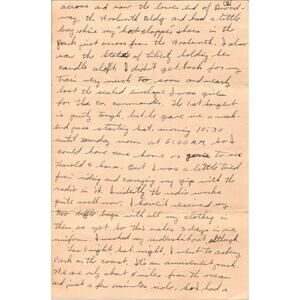 across and saw the lower end of Broad-
way, the Woolworth Bldg. and had a little
boy shine my shoes in the
park just across from the Woolworth. I also
saw the Statue of Liberty, holding her
candle aloft. I didn't get back for my
train very much too soon and nearly
lost the sealed envelope I was given
for the car commander. The 1st Sargent
is quite tough, but he gave me a week-
end pass starting Sat. morning 10:30
until Monday morn at 6:00 AM so I
could have came home or gone to see
Harold & Lana. But I was a little tired
from riding and carrying my grip with the
radio in it. Incidently the radio works
quite well now. I haven't received my
two duffle bags with all my clothing in
them as yet so this makes 3 days in one
uniform. I washed my undershirt out although
last night. Last night, I went to Asbury
Park on the coast. It's an amusement park.
We are only about 4 miles from the ocean
and just a few minutes ride. So I had a